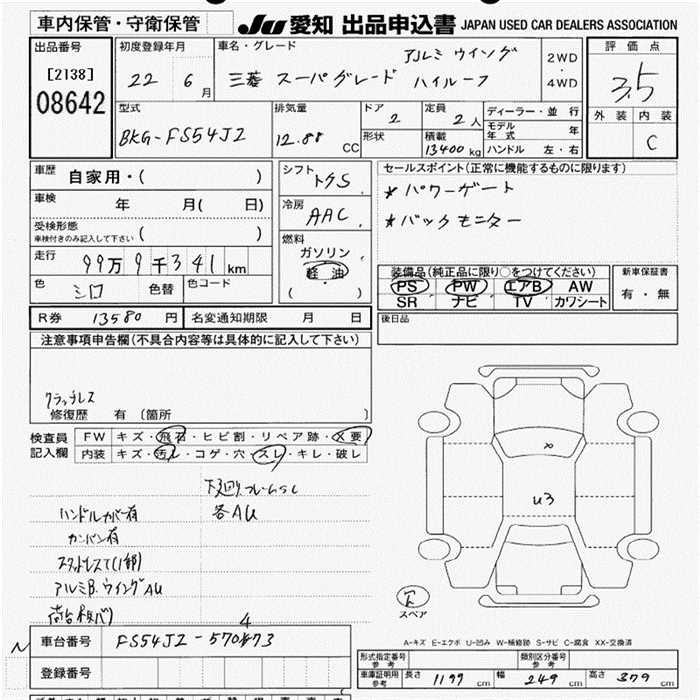 車内保管・守衛保管
JU 愛知 出品申込書 JAPAN USED CAR DEALERS ASSOCIATION
出品番号
[2138]
08642
初度登録年月
22 6月
車名・グレード
アルミ ウイング
三菱 スーパグレード ハイルーフ
2WD
・
4WD
評価点
3.5
外装 内装
C
型式
BKG-FS54JZ
排気量
12.88 CC
ドア
2
定員
2人
形状
積載
13400kg
ディーラー・並行
モデル年式 年
ハンドル 左・右
車歴 自家用・( )
車検 年 月( 日)
受検形態
車検付きのみ記入して下さい ( )
走行 99万9千341km
色 シロ 色替 色コード
シフト
冷房
AAC
燃料
ガソリン
軽油
( )
セールスポイント(正常に機能するものに限ります)
*パワーゲート
*バックモニター
装備品(純正品に限り○をつけてください)
PS PW エアB AW
SR ナビ TV カワシート
新車保証書
有・無
R券 13580円 名変通知期限 月 日
後日品
注意事項申告欄(不具合内容等は具体的に記入して下さい)
クラッチレス
修復歴 有 (箇所 )
検査員記入欄
FW キズ・飛石・ヒビ割・リペア跡・X要
内装 キズ・汚レ・コゲ・穴・スレ・キレ・破レ
下廻りフレームSC
各AU
ハンドルカバー有
カンバン有
スタットレスT(1部)
アルミB.ウイングAU
荷台板バリ
X
U3
スペア
A-キズ E-エクボ U-凹み W-補修跡 S-サビ C-腐食 XX-交換済
N 車台番号 FS54JZ-570473
4
登録番号
形式指定番号
参考
類別区分番号
参考
車庫証明用
参考
長さ 1197cm 幅 249cm 高さ 379cm